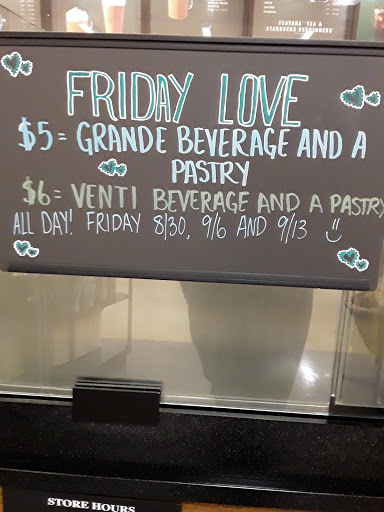 TEAVANA TEA &
STARBUCKS REFRESHERS
FRIDAY LOVE
$5 = GRANDE BEVERAGE AND A
PASTRY
$6 = VENTI BEVERAGE AND A PASTRY
ALL DAY! FRIDAY 8/30, 9/6 AND 9/13
STORE HOURS